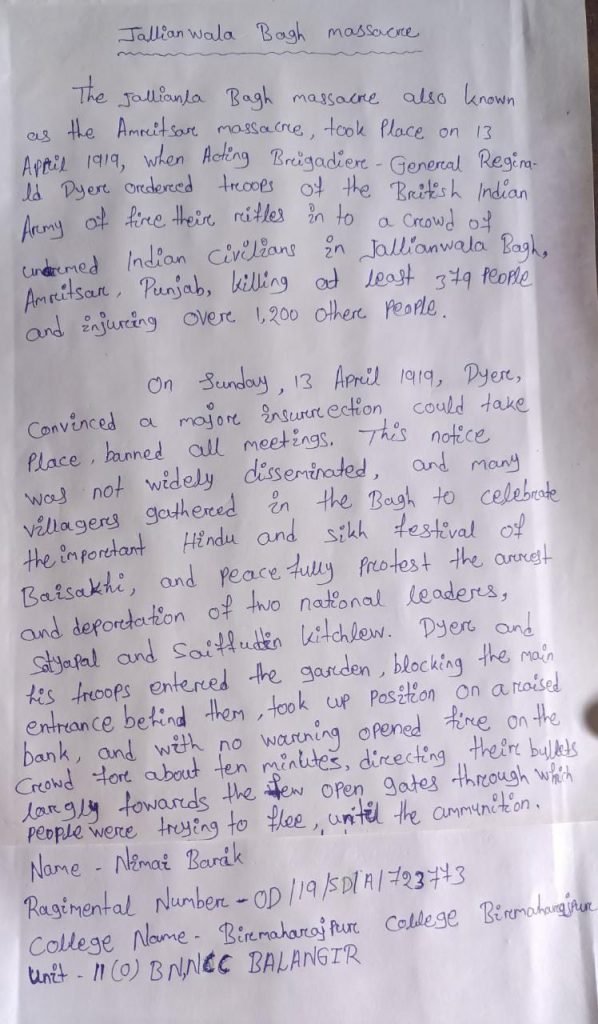 Jallianwala Bagh massacre
The Jallianla Bagh massacre also known
as the Amritsar massacre, took Place on 13
April 1919, when Acting Brigadier - General Regina-
ld Dyer ordered troops of the British Indian
Army of fire their rifles in to a crowd of
unarmed Indian Civilians in Jallianwala Bagh,
Amritsar, Punjab, killing at least 379 People
and injuring over 1,200 other People.
On Sunday, 13 April 1919, Dyer,
Convinced a major insurrection could take
Place, banned all meetings. This notice
was not widely disseminated, and many
villagers gathered in the Bagh to celebrate
the important Hindu and sikh festival of
Baisakhi, and peace fully Protest the arrest
and deportation of two national leaders,
Satyapal and Saiffuddin Kitchlew. Dyer and
his troops entered the garden, blocking the main
entrance behind them, took up Position on a raised
bank, and with no warning opened fire on the
Crowd for about ten minutes, directing their bullets
largly towards the few open gates through which
people were trying to flee, until the ammunition.
Name - Nimai Barik
Ragimental Number - OD/19/SD/A/723773
College Name - Birmaharajpur College Birmaharajpur
Unit - 11 (O) BN,NCC BALANGIR